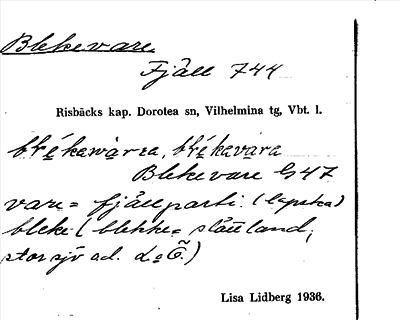 Blekevare
Fjäll 744
Risbäcks kap. Dorotea sn, Vilhelmina tg, Vbt. l.
Blekevare G47
vare = fjällparti (lapska)
bleke (blekke = slätt land,
stor sjö ad. d:o Ö.)
Lisa Lidberg 1936.